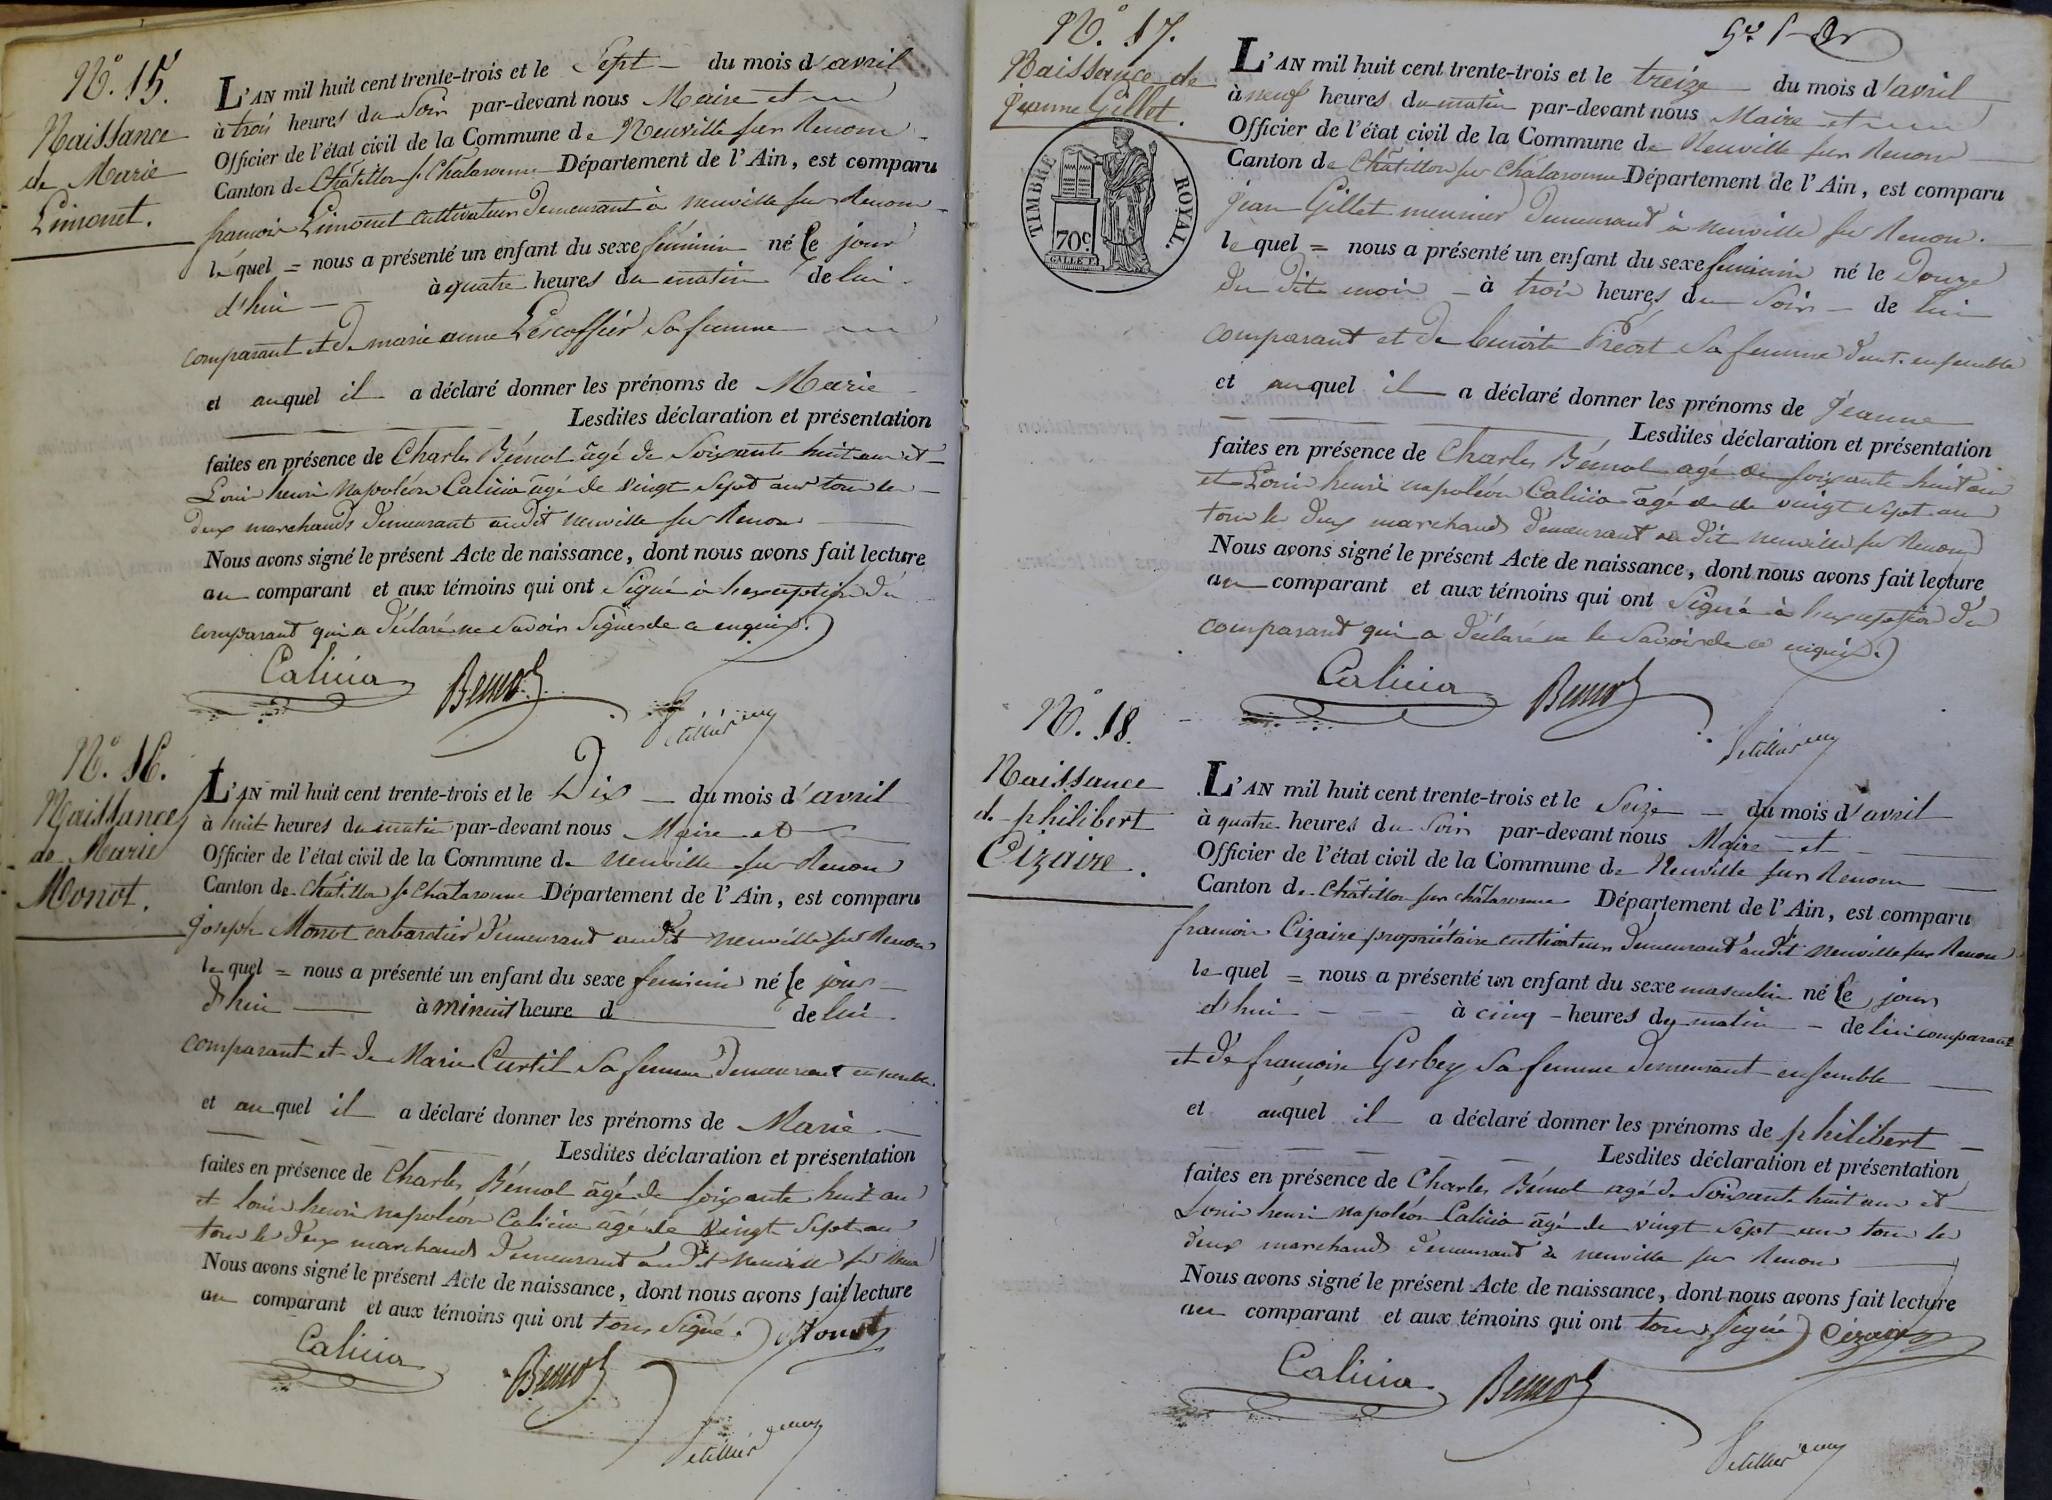 N.º 15.
Naissance
de Marie
Limonet.
L'AN mil huit cent trente-trois et le Sept du mois d'avril
à trois heures du Soir par-devant nous Maire et
Officier de l'état civil de la Commune de Neuville sur Renom
Canton de Châtillon s. Chalaronne Département de l'Ain, est comparu
françois Limonet cultivateur demeurant à neuville sur Renom
lequel = nous a présenté un enfant du sexe féminin né le jour
d'hui à quatre heures du matin de lui
comparant et de marie anne Lescoffier sa femme
et auquel il a déclaré donner les prénoms de Marie
Lesdites déclaration et présentation
faites en présence de Charles Bémol âgé de Soixante huit ans et
Louis henri Napoléon Calicia âgé de vingt Sept ans tous les
deux marchands demeurant audit neuville sur Renom
Nous avons signé le présent Acte de naissance, dont nous avons fait lecture
au comparant et aux témoins qui ont Signé à l'exception du
comparant qui a déclaré ne Savoir Signer de ce enquis.
Calicia Bemol
N.º 16.
Naissance
de Marie
Monot.
L'AN mil huit cent trente-trois et le Dix du mois d'avril
à huit heures du matin par-devant nous Maire et
Officier de l'état civil de la Commune de neuville sur Renom
Canton de Châtillon s. Chalaronne Département de l'Ain, est comparu
joseph Monot cabaretier demeurant audit neuville sur Renom
lequel = nous a présenté un enfant du sexe feminin né le jour
d'hui à minuit heure d de lui
comparant et de Marie Curtil sa femme demeurant ensemble
et auquel il a déclaré donner les prénoms de Marie
Lesdites déclaration et présentation
faites en présence de Charles Bémol âgé de soixante huit ans
et Louis henri napoléon Calicia âgé de vingt Sept ans
tous les deux marchands demeurant audit Neuville sur Renom
Nous avons signé le présent Acte de naissance, dont nous avons fait lecture
au comparant et aux témoins qui ont tous Signé. Monot
Calicia Bemol
N.º 17.
Naissance de
jeanne Gillet.
TIMBRE ROYAL.
70c
L'AN mil huit cent trente-trois et le treize du mois d'avril
à neuf heures du matin par-devant nous Maire et
Officier de l'état civil de la Commune de Neuville sur Renom
Canton de Châtillon sur Chalaronne Département de l'Ain, est comparu
jean Gillet meunier demeurant à neuville sur Renom.
lequel = nous a présenté un enfant du sexe feminin né le Douze
du dit mois à trois heures du Soir de lui
comparant et de benoite sa femme demt. ensemble
et auquel il a déclaré donner les prénoms de jeanne
Lesdites déclaration et présentation
faites en présence de Charles Bémol agé de soixante huit ans
et Louis henri napoléon Calicia âgé de vingt Sept ans
tous les deux marchands demeurant au dit neuville sur Renom
Nous avons signé le présent Acte de naissance, dont nous avons fait lecture
au comparant et aux témoins qui ont Signé à l'exception du
comparant qui a déclaré ne le Savoir de ce enquis.
Calicia Bemol
N.º 18.
Naissance
de philibert
Cizaire.
L'AN mil huit cent trente-trois et le Seize du mois d'avril
à quatre heures du Soir par-devant nous Maire et
Officier de l'état civil de la Commune de Neuville sur Renom
Canton de Châtillon sur châlaronne Département de l'Ain, est comparu
francois Cizaire propriétaire cultivateur demeurant audit Neuville sur Renom
lequel = nous a présenté un enfant du sexe masculin né le jour
d'hui à cinq heures du matin de lui comparant
et de françoise Gerbey sa femme demeurant ensemble
et auquel il a déclaré donner les prénoms de philibert
Lesdites déclaration et présentation
faites en présence de Charles Bémol agé de Soixante huit ans et
Louis henri napoléon Calicia âgé de vingt Sept ans tous les
deux marchands demeurant à neuville sur Renom
Nous avons signé le présent Acte de naissance, dont nous avons fait lecture
au comparant et aux témoins qui ont tous signé Cizaire
Calicia Bemol